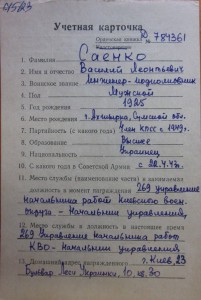 Учетная карточка
№ 784361
1. Фамилия Саенко
2. Имя и отчество Василий Леонтьевич
3. Воинское звание Инженер-подполковник
4. Пол Мужской
5. Год рождения 1925
6. Место рождения г. Ахтырка, Сумской обл.
7. Партийность (с какого года) Член КПСС с 1949г.
8. Образование Высшее
9. Национальность Украинец
10. С какого года в Советской Армии с 28.4.42г.
11. Место службы (наименование части) и занимаемая
должность в момент награждения 269 управление
начальника работ Киевского воен.
округа - Начальник управления,
12. Место службы и должность в настоящее время
269 Управление начальника работ
КВО - Начальник управления
13. Домашний адрес награжденного г. Киев, 23
Бульвар Леси Украинки, 10, кв. 30